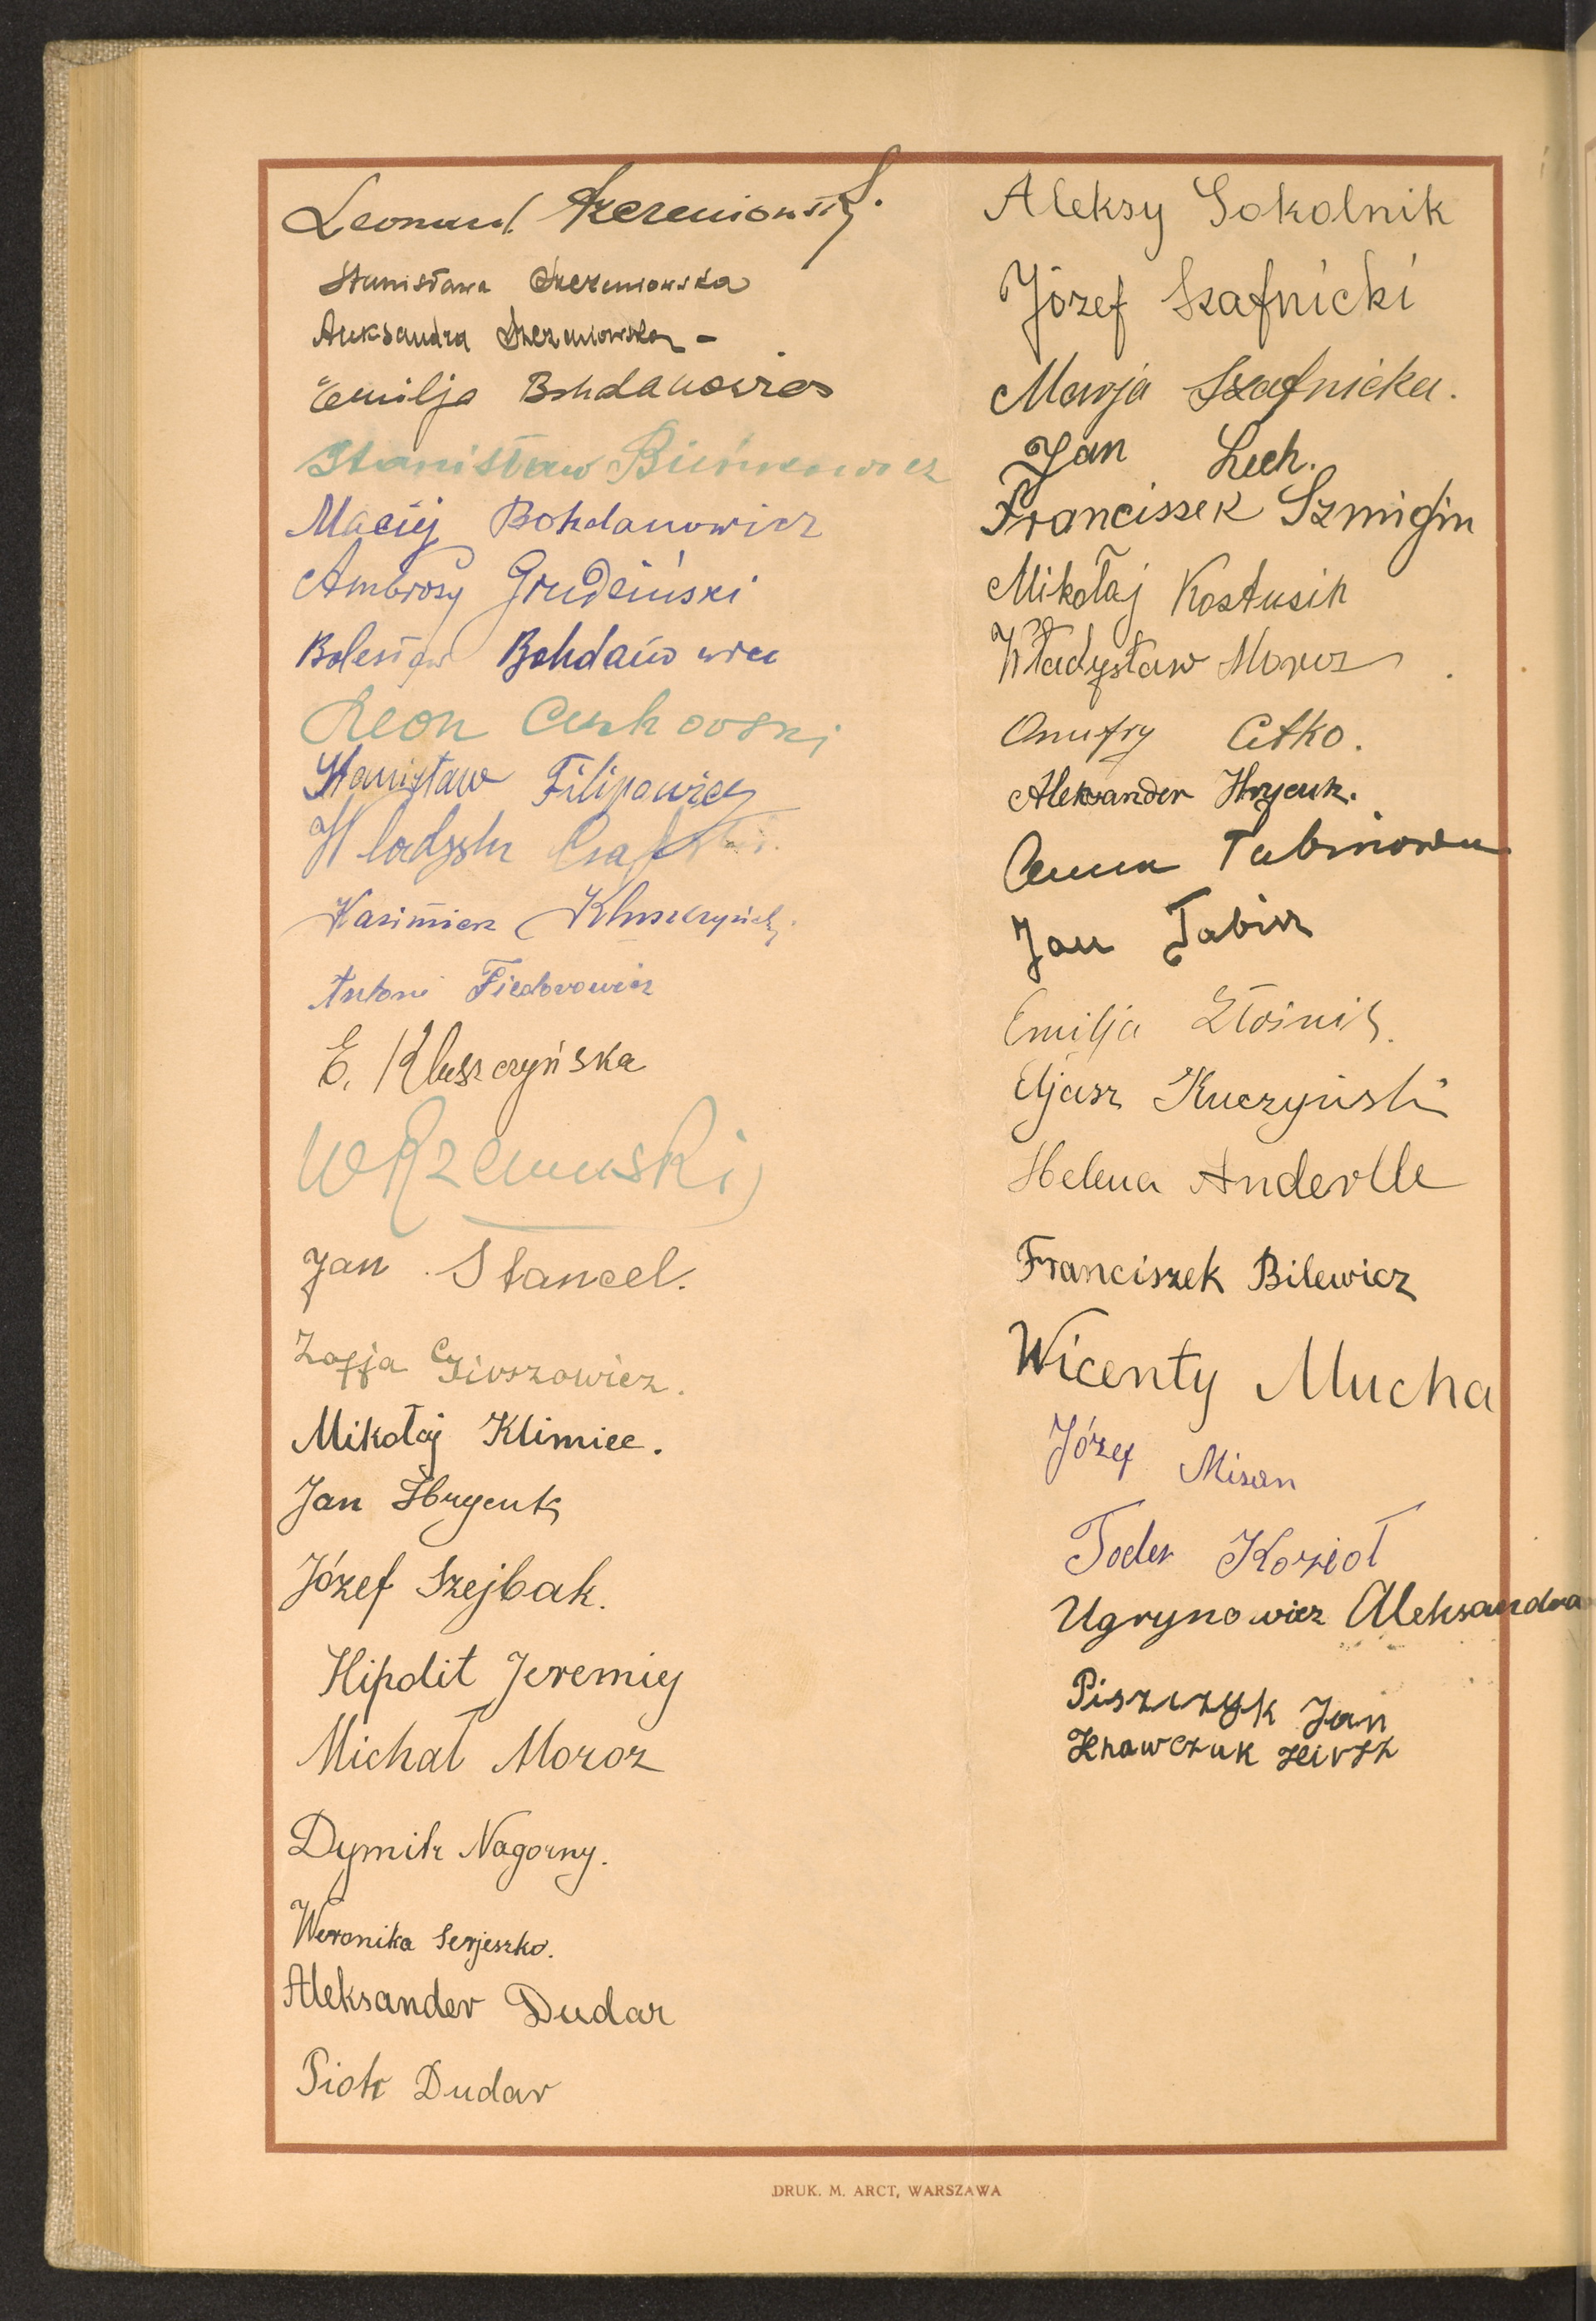 Leonard Szczeniowski.
Stanisława Szczeniowska
Aleksandra Szczeniowska -
Emilja Bohdanowicz
Stanisław
Maciej Bohdanowicz
Ambrosy Grudziński
Bolesław Bohdanowicz
Leon
Stanisław Filipowicz
Kasimierz Kluszczyński
Antoni Fiedorowicz
E. Kluszczyńska
Jan Stancel.
Zofja
Mikołaj Klimiec.
Jan Hrycuk
Józef Szejbak.
Hipolit Jeremiej
Michał Moroz
Dymitr Nagorny.
Weronika Serjeszko.
Aleksander Dudar
Piotr Dudar
Aleksy Sokolnik
Józef Szafnicki
Marja Szafnicka.
Jan Lech.
Franciszek Szmigin
Mikołaj Kostusik
Władysław Moroz
Onufry Citko.
Aleksander Hrycuk.
Anna Tabinowa
Jan Tabin
Emilja
Eljasz Kuczyński
Helena Anderlle
Franciszek Bilewicz
Wicenty Mucha
Józef Misan
Toder Kozioł
Ugrynowicz Aleksandra
Piszczyk Jan
Krawczuk
DRUK. M. ARCT, WARSZAWA